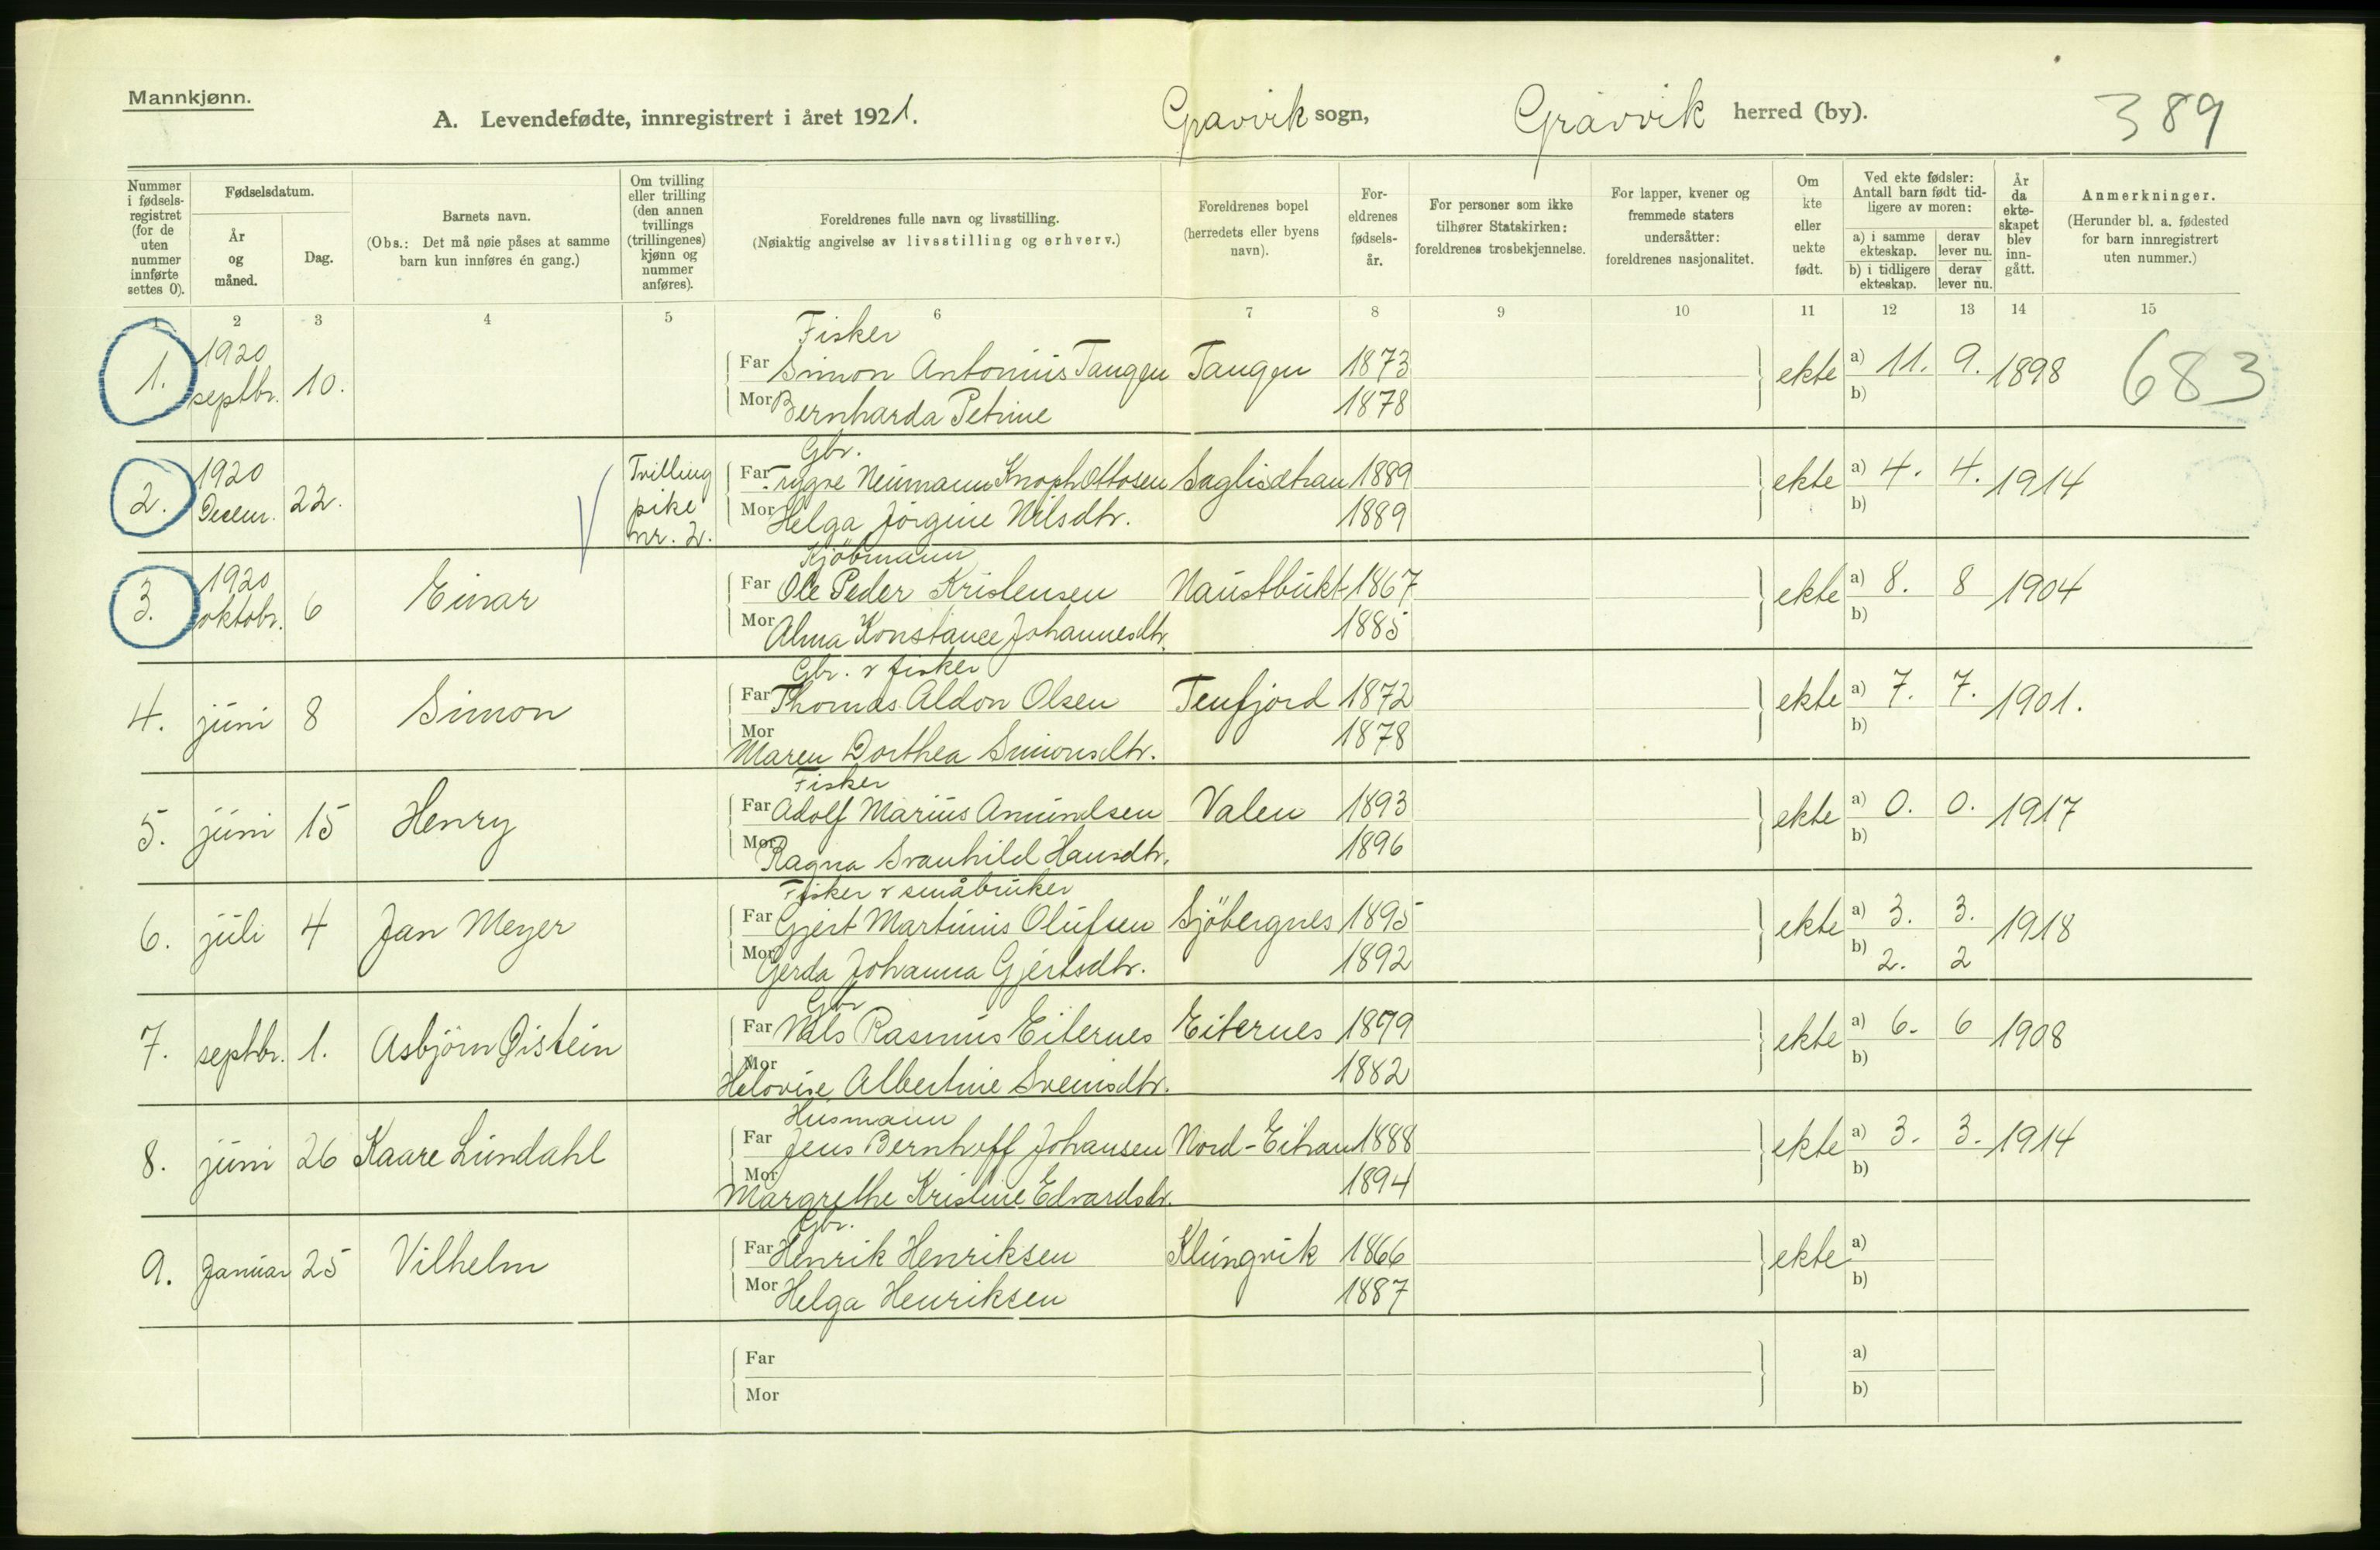 Mannkjønn.
A. Levendefødte, innregistrert i året 1921. Gravvik sogn, Gravvik herred (by). 389
Nummer i fødselsregistret (for de uten nummer innførte settes 0).
Fødselsdatum.
År og måned.
Dag.
Barnets navn.
(Obs.: Det må nøie påses at samme barn kun innføres én gang.)
Om tvilling eller trilling (den annen tvillings (trillingenes) kjønn og nummer anføres).
Foreldrenes fulle navn og livsstilling.
(Nøiaktig angivelse av livsstilling og erhverv.)
Foreldrenes bopel (herredets eller byens navn).
Foreldrenes fødselsår.
For personer som ikke tilhører Statskirken: foreldrenes trosbekjennelse.
For lapper, kvener og fremmede staters undersåtter: foreldrenes nasjonalitet.
Om kte eller uekte født.
Ved ekte fødsler: Antall barn født tidligere av moren:
a) i samme ekteskap. derav lever nu.
b) i tidligere ekteskap. derav lever nu.
År da ekteskapet blev inngått.
Anmerkninger.
(Herunder bl. a. fødested for barn innregistrert uten nummer.)
1 2 3 4 5 6 7 8 9 10 11 12 13 14 15
Fisker
1. 1920 septbr. 10. Far Simon Antonius Tangen Tangen 1873 ekte a) 11. 9. 1898 683
Mor Bernharda Petrine 1878 b)
Gbr.
2. 1920 Decem. 22. Tvilling pike nr. 2. Far Trygve Neumann Knoph Ottosen 1889 ekte a) 4. 4. 1914
Mor Helga Jörgine Nilsdtr. 1889 b)
Kjöbmann
3. 1920 oktobr. 6 Einar Far Ole Peder Kristensen Naustbukt 1867 ekte a) 8. 8 1904
Mor Alma Konstance Johannesdtr. 1885 b)
Gbr. & fisker
4. juni 8 Simon Far Thomas Aldon Olsen Tenfjord 1872 ekte a) 7. 7. 1901.
Mor Maren Dorthea Simonsdtr. 1878 b)
Fisker
5. juni 15 Henry Far Adolf Marius Amundsen Valen 1893 ekte a) 0. 0. 1917
Mor Ragna Svanhild Hansdtr. 1896 b)
Fisker & småbruker
6. juli 4 Jan Meyer Far Gjert Martinus Olufsen Sjöbergnes 1895 ekte a) 3. 3. 1918
Mor Gerda Johanna Gjertsdtr. 1892 b) 2. 2
Gbr
7. septbr. 1. Asbjörn Øistein Far Nils Rasmus Eiternes Eiternes 1879 ekte a) 6. 6 1908
Mor Helovise Albertine Sveinsdtr. 1882 b)
Husmann
8. juni 26 Kaare Lundahl Far Jens Bernhoff Johansen Nord-Eitran 1888 ekte a) 3. 3. 1914
Mor Margrethe Kristine Edvardsdr. 1894 b)
Gbr.
9. Januar 25 Vilhelm Far Henrik Henriksen Klungvik 1866 ekte a)
Mor Helga Henriksen 1887 b)
Far a)
Mor b)